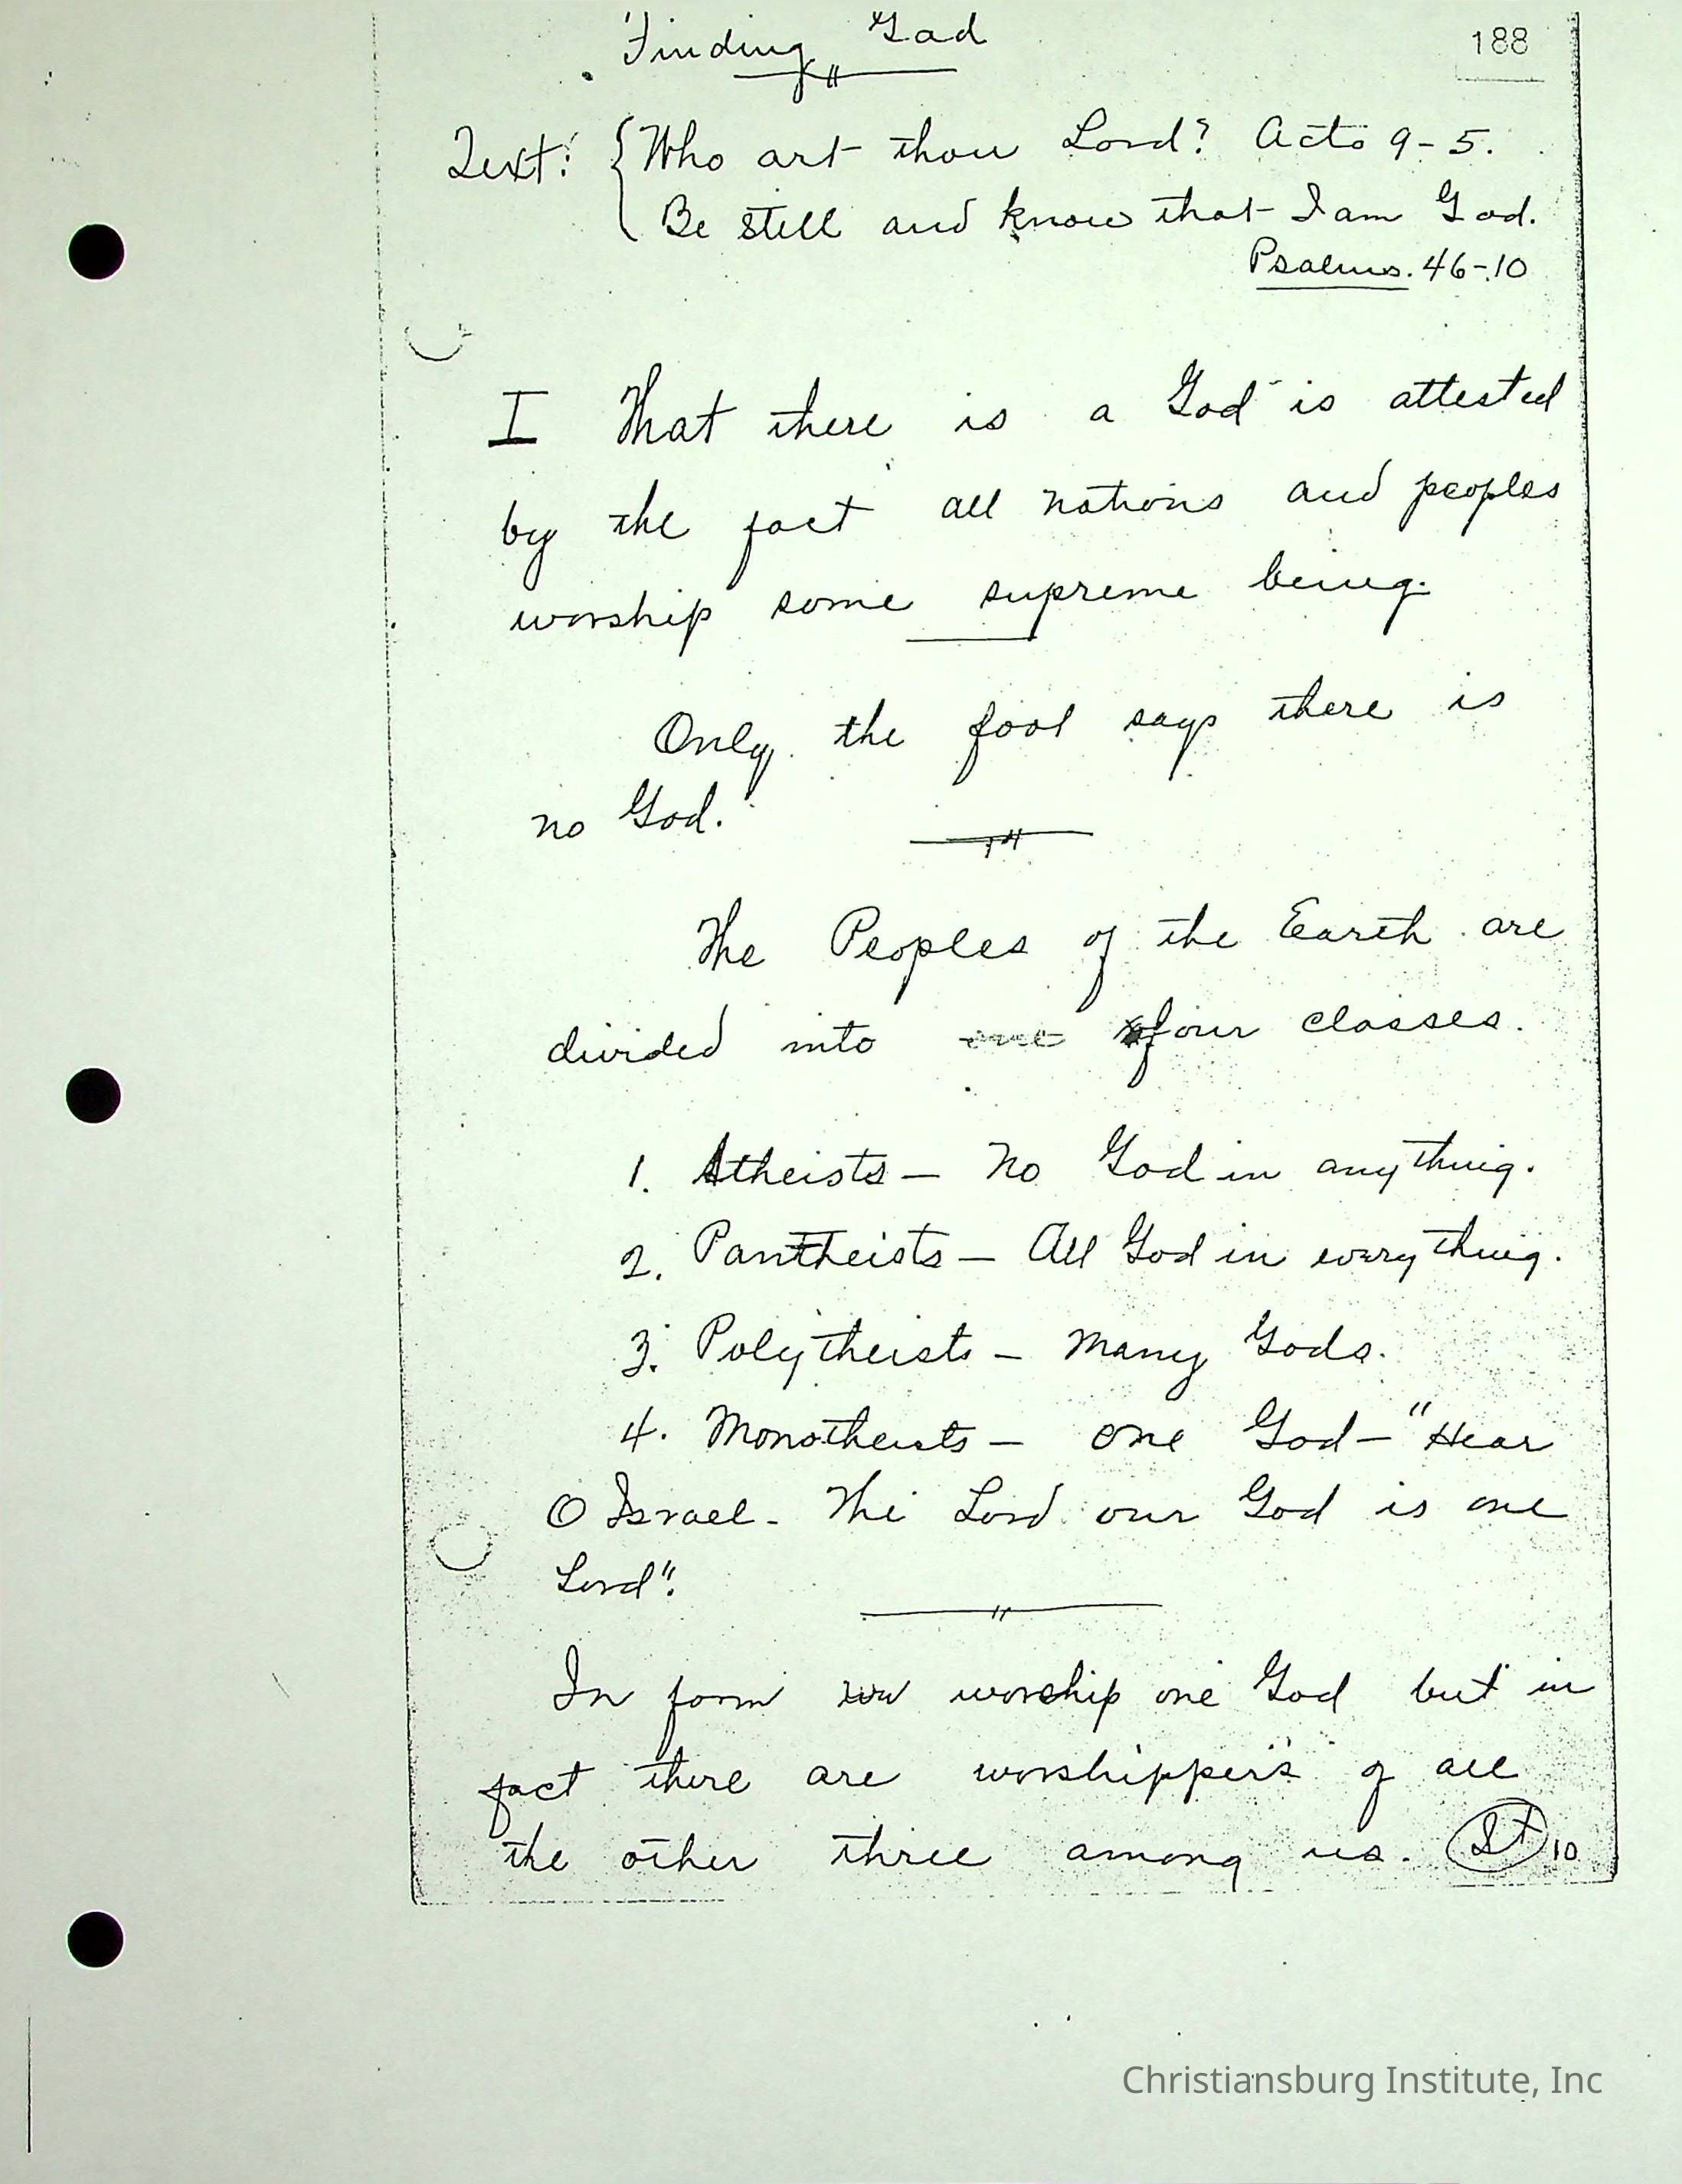 Finding God
188
Text: { Who art thou Lord? Acts 9-5.
Be still and know that I am God.
Psalms. 46-10
I That there is a God is attested
by the fact all nations and peoples
worship some supreme being.
Only the fool says there is
no God.
The Peoples of the Earth are
divided into one four classes.
1. Atheists - No God in anything.
2. Pantheists - All God in everything.
3. Polytheists - Many Gods.
4. Monotheists - One God - "Hear
O Israel - The Lord our God is one
Lord".
In form we worship one God but in
fact there are worshippers of all
the other three among us. St 10
Christiansburg Institute, Inc